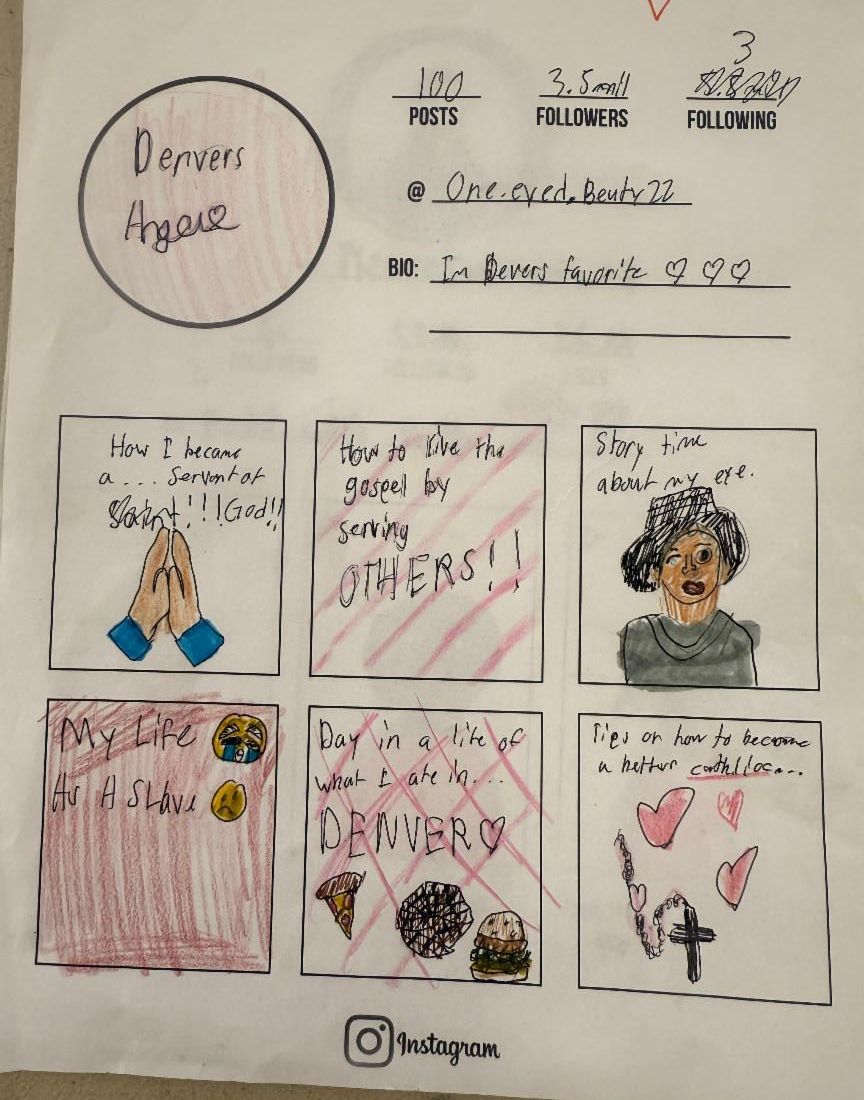 3
100
3.5mill
POSTS
FOLLOWERS
FOLLOWING
Denvers
Angel
@ One.eyed.Beuty22
BIO: Im Devers favorite
How I became
a... Servant of
!!! God!!
How to live the
gospell by
serving
OTHERS!!
Story time
about my eye.
My Life
As A Slave
Day in a life of
what I ate in...
DENVER
Tips on how to become
a better cathlioc...
Instagram